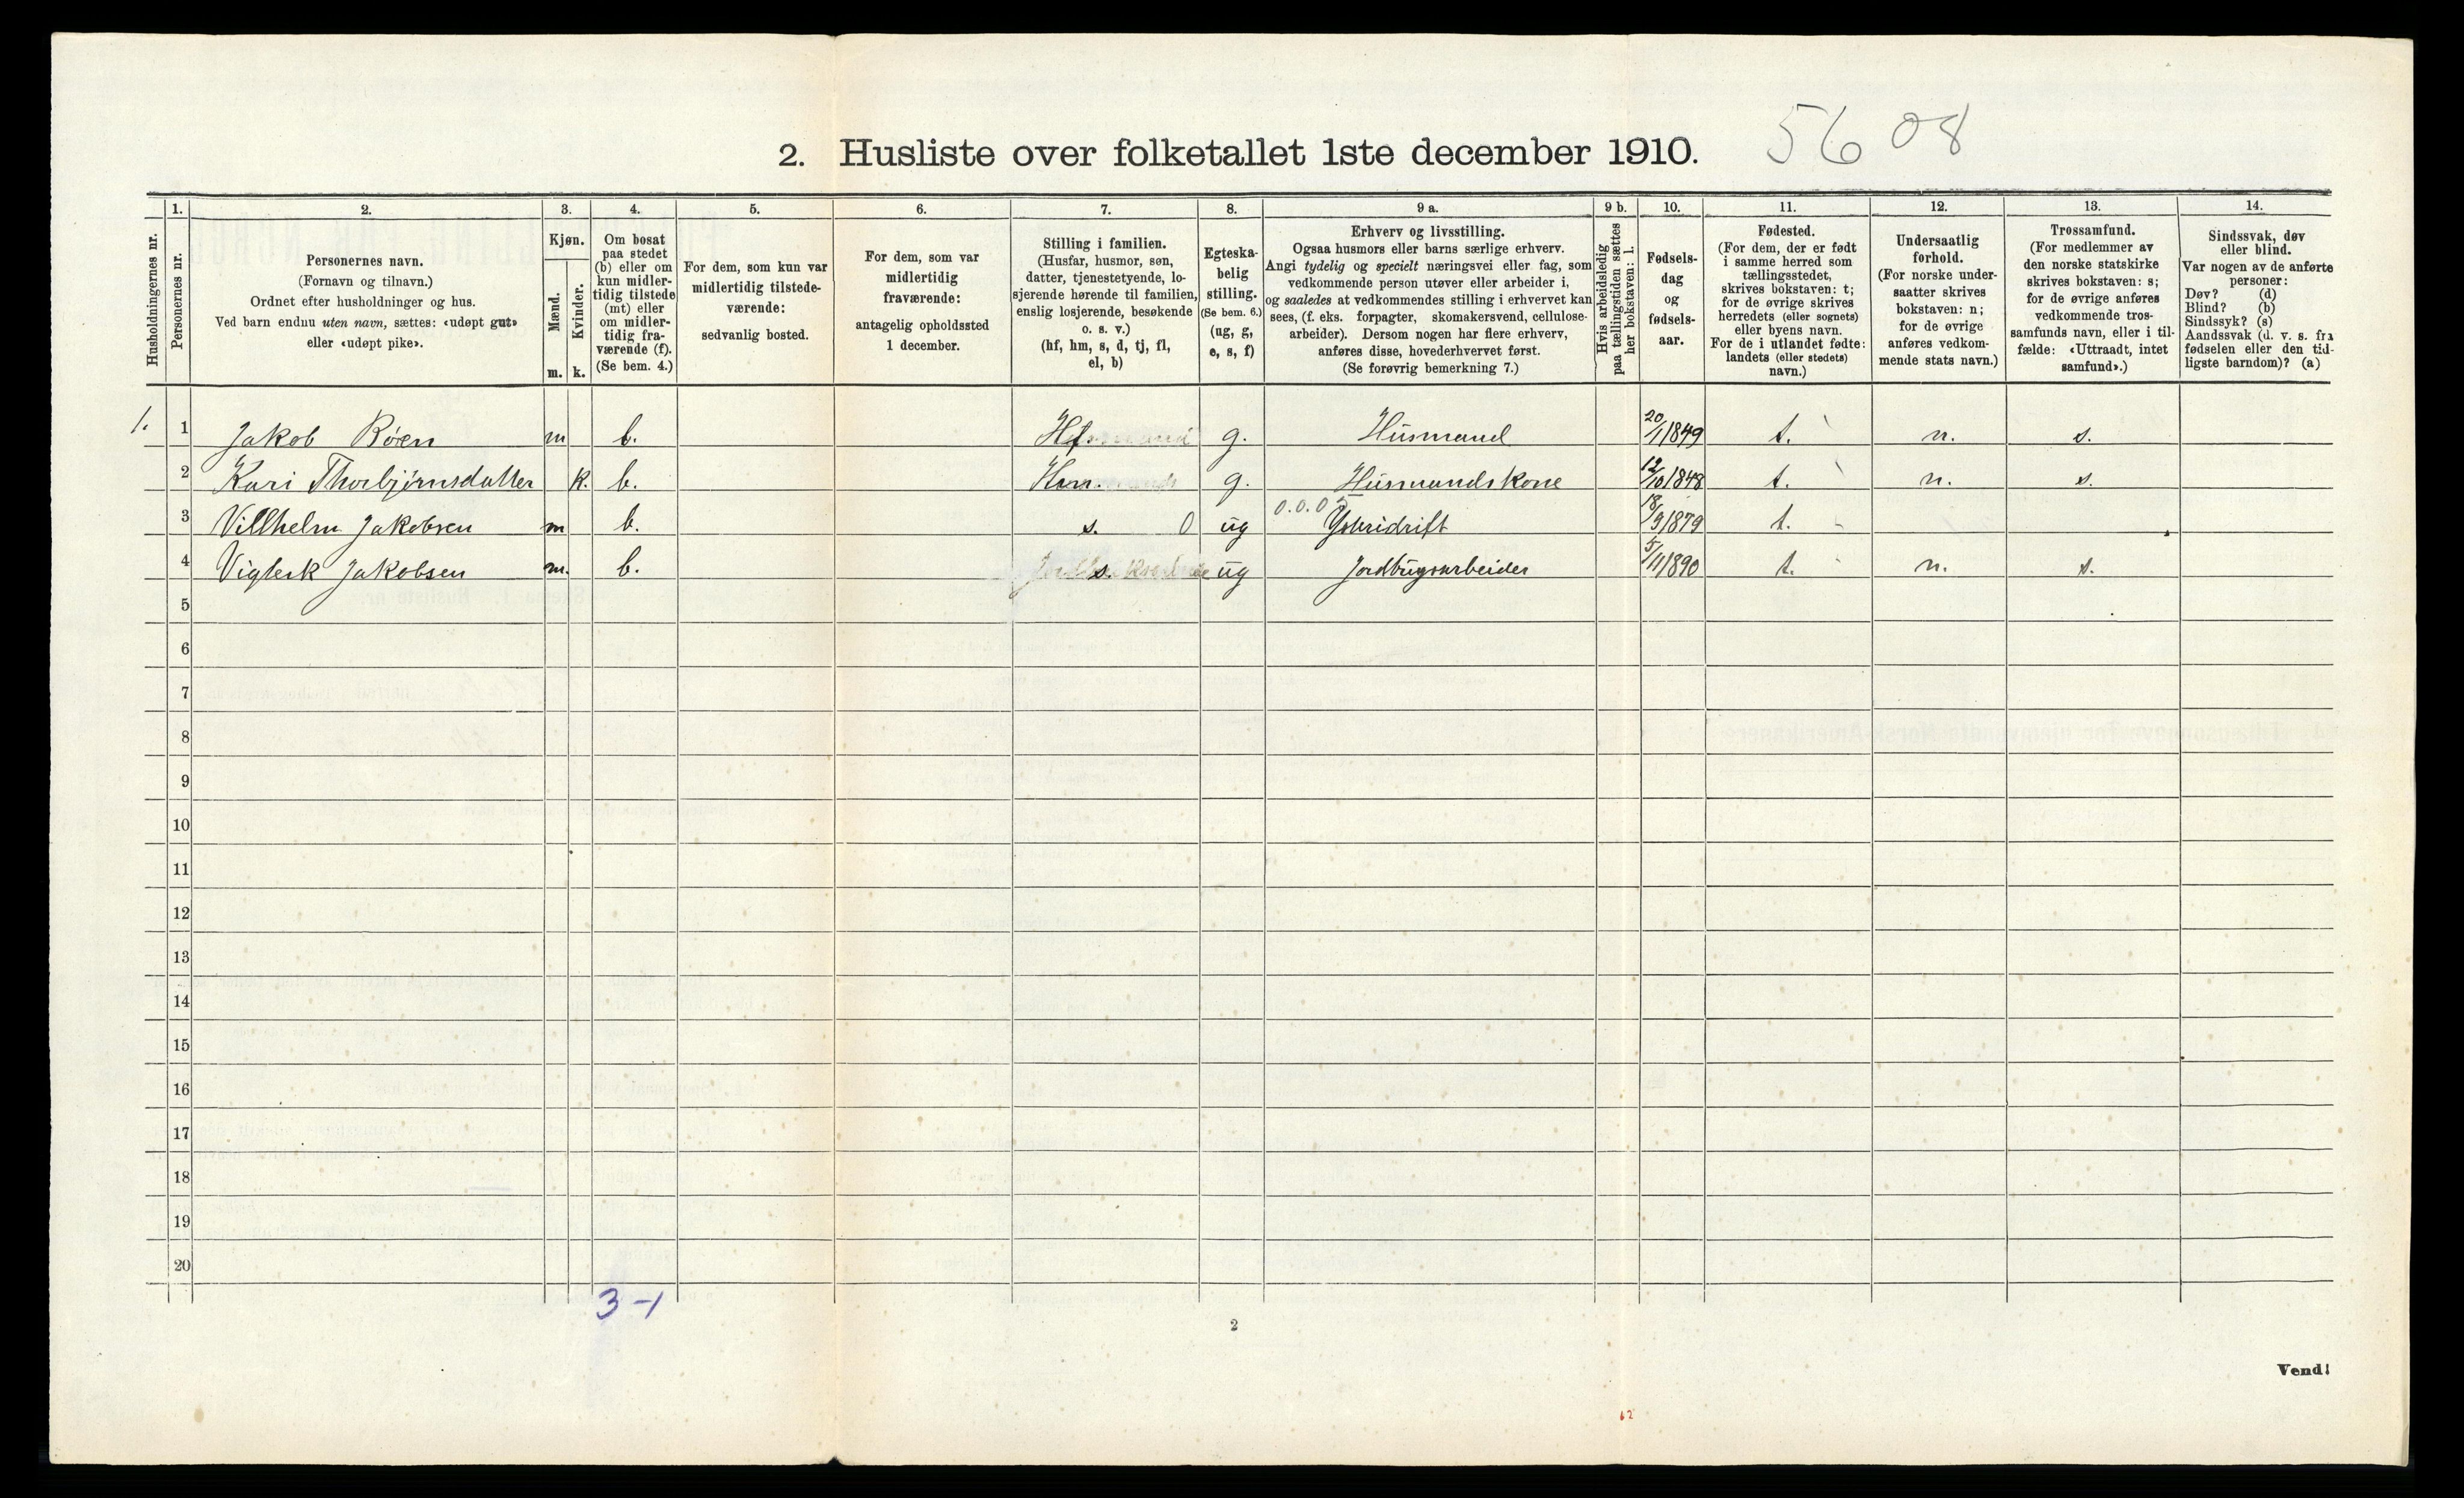 2. Husliste over folketallet 1ste december 1910. 5608
Husholdningernes nr.
1. Personernes nr.
2. Personernes navn.
(Fornavn og tilnavn.)
Ordnet efter husholdninger og hus.
Ved barn endnu uten navn, sættes: «udøpt gut»
eller «udøpt pike».
3. Kjøn.
Mænd. m.
Kvinder. k.
4. Om bosat
paa stedet
(b) eller om
kun midler-
tidig tilstede
(mt) eller
om midler-
tidig fra-
værende (f).
(Se bem. 4.)
5. For dem, som kun var
midlertidig tilstede-
værende:
sedvanlig bosted.
6. For dem, som var
midlertidig
fraværende:
antagelig opholdssted
1 december.
7. Stilling i familien.
(Husfar, husmor, søn,
datter, tjenestetyende, lo-
sjerende hørende til familien,
enslig losjerende, besøkende
o. s. v.)
(hf, hm, s, d, tj, fl,
el, b)
8. Egteska-
belig
stilling.
(Se bem. 6.)
(ug, g,
e, s, f)
9 a. Erhverv og livsstilling.
Ogsaa husmors eller barns særlige erhverv.
Angi tydelig og specielt næringsvei eller fag, som
vedkommende person utøver eller arbeider i,
og saaledes at vedkommendes stilling i erhvervet kan
sees, (f. eks. forpagter, skomakersvend, cellulose-
arbeider). Dersom nogen har flere erhverv,
anføres disse, hovederhvervet først.
(Se forøvrig bemerkning 7.)
9 b. Hvis arbeidsledig
paa tællingstiden sættes
her bokstaven: l.
10. Fødsels-
dag
og
fødsels-
aar.
11. Fødested.
(For dem, der er født
i samme herred som
tællingsstedet,
skrives bokstaven: t;
for de øvrige skrives
herredets (eller sognets)
eller byens navn.
For de i utlandet fødte:
landets (eller stedets)
navn.)
12. Undersaatlig
forhold.
(For norske under-
saatter skrives
bokstaven: n;
for de øvrige
anføres vedkom-
mende stats navn.)
13. Trossamfund.
(For medlemmer av
den norske statskirke
skrives bokstaven: s;
for de øvrige anføres
vedkommende tros-
samfunds navn, eller i til-
fælde: «Uttraadt, intet
samfund».)
14. Sindssvak, døv
eller blind.
Var nogen av de anførte
personer:
Døv? (d)
Blind? (b)
Sindssyk? (s)
Aandssvak (d. v. s. fra
fødselen eller den tid-
ligste barndom)? (a)
1. 1 Jakob Röen m b. Hf. g. Husmand 20/1 1849 t. n. s.
2 Kari Thorbjörnsdatter k. b. Hm. g. Husmandskone 12/10 1848 t. n. s.
0.0.05
3 Villhelm Jakobsen m b. s. 0 ug 18/9 1879 t.
4 Vigleik Jakobsen m. b. s. ug Jordbrugsarbeider 5/11 1890 t. n. s.
5
6
7
8
9
10
11
12
13
14
15
16
17
18
19
20
3-1
2
Vend!
62